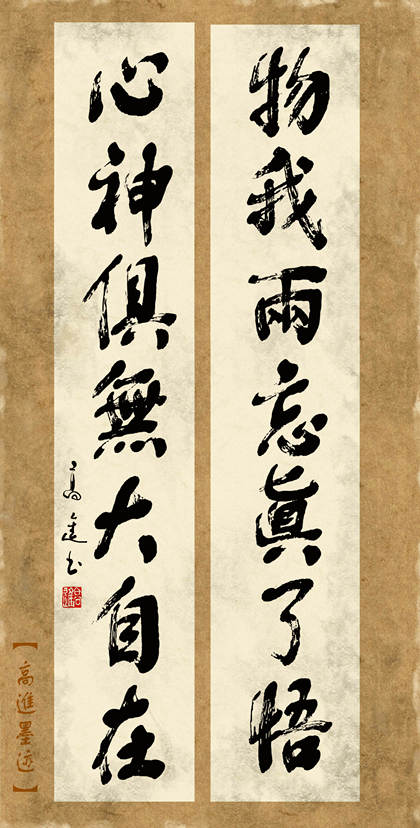 物我兩忘眞了悟
心神俱無大自在
高進书
【高進墨迹】